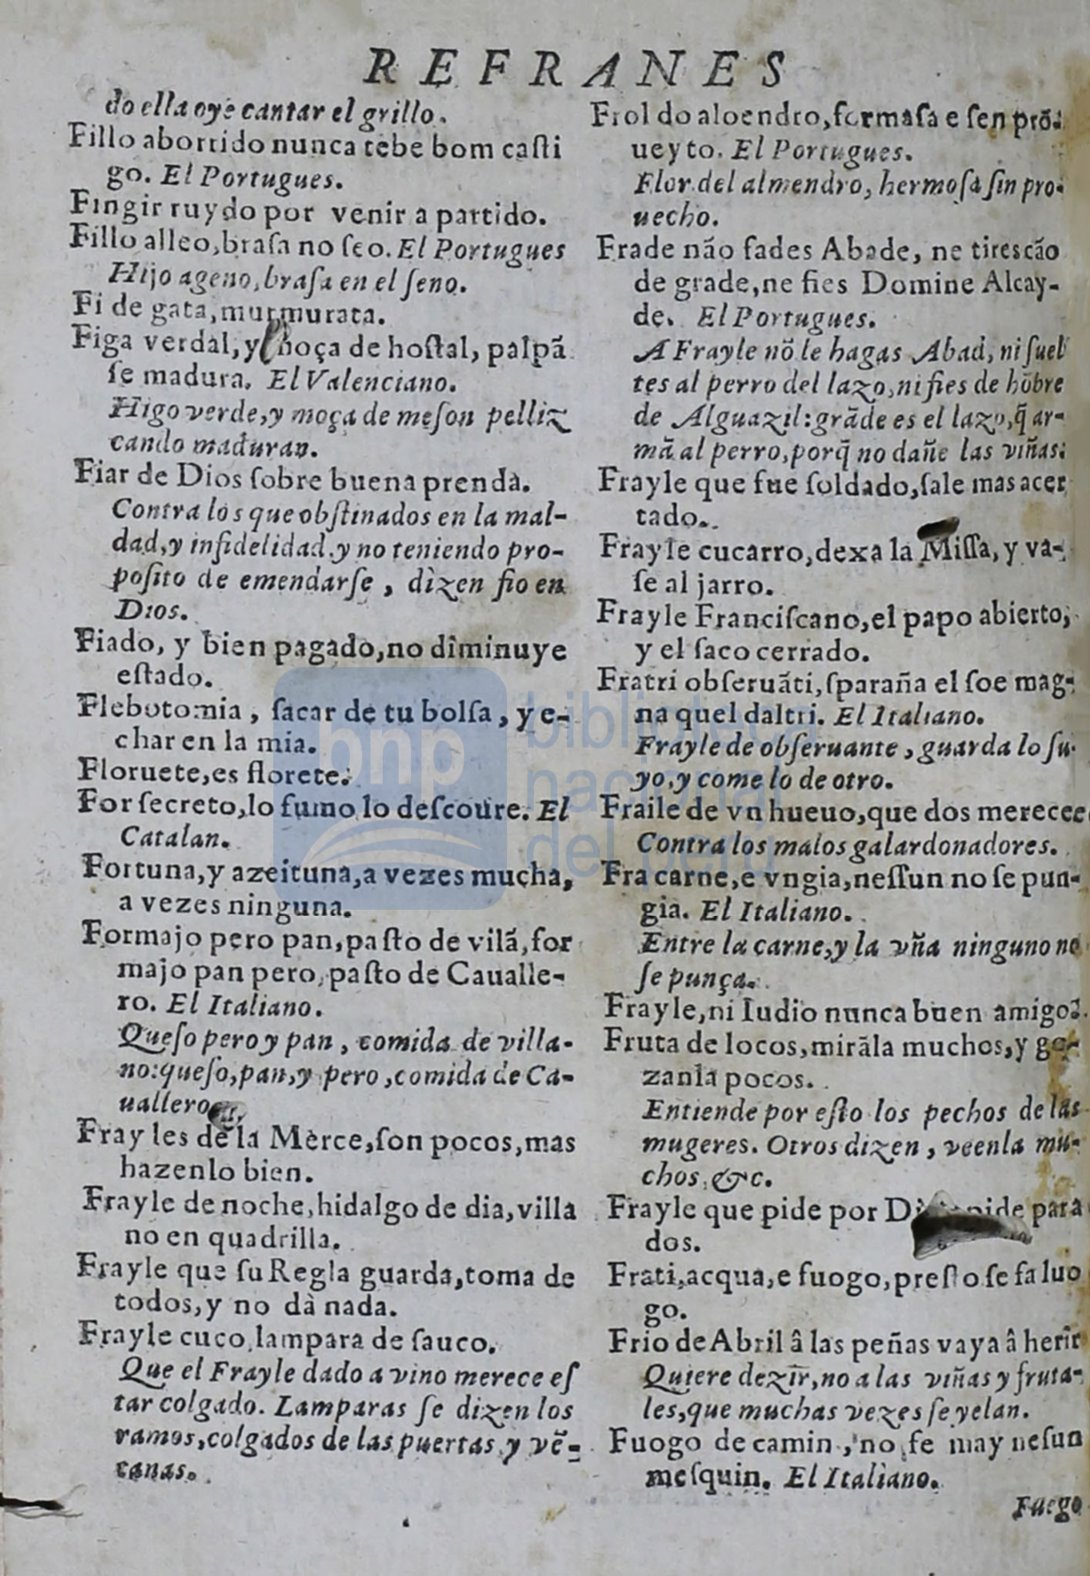 REFRANES
do ella oye cantar el grillo.
Fillo aborrido nunca tebe bom casti
go. El Portugues.
Fingir ruydo por venir a partido.
Fillo alleo, brasa no seo. El Portugues
Hijo ageno, brasa en el seno.
Fi de gata, murmurata.
Figa verdal, y moça de hostal, palpã
se madura. El Valenciano.
Higo verde, y moça de meson pelliz
cando maduran.
Fiar de Dios sobre buena prenda.
Contra los que obstinados en la mal-
dad, y infidelidad, y no teniendo pro-
posito de emendarse, dizen fio en
Dios.
Fiado, y bien pagado, no diminuye
estado.
Flebotomia, sacar de tu bolsa, y e-
char en la mia.
Floruete, es florete.
For secreto, lo fumo lo descoure. El
Catalan.
Fortuna, y azeituna, a vezes mucha,
a vezes ninguna.
Formajo pero pan, pasto de vilã, for
majo pan pero, pasto de Caualle-
ro. El Italiano.
Queso pero y pan, comida de villa-
no: queso, pan, y pero, comida de Ca-
uallero
Frayles de la Merce, son pocos, mas
hazenlo bien.
Frayle de noche, hidalgo de dia, villa
no en quadrilla.
Frayle que su Regla guarda, toma de
todos, y no dà nada.
Frayle cuco, lampara de sauco.
Que el Frayle dado a vino merece es
tar colgado. Lamparas se dizen los
ramos, colgados de las puertas y vẽ-
tanas.
Frol do aloendro, formasa e sen prõ-
ueyto. El Portugues.
Flor del almendro, hermosa sin pro-
uecho.
Frade não fades Abade, ne tirescão
de grade, ne fies Domine Alcay-
de. El Portugues.
A Frayle nõ le hagas Abad, ni suel
tes al perro del lazo, ni fies de hõbre
de Alguazil: grãde es el lazo, q̃ ar-
mã al perro, porq̃ no dañe las viñas.
Frayle que fue soldado, sale mas acer
tado.
Frayle cucarro, dexa la Missa, y va-
se al jarro.
Frayle Franciscano, el papo abierto,
y el saco cerrado.
Fratri obseruãti, sparaña el soe mag-
na quel daltri. El Italiano.
Frayle de obseruante, guarda lo su-
yo, y come lo de otro.
Fraile de vn hueuo, que dos merece
Contra los malos galardonadores.
Fra carne, e vngia, nessun no se pun-
gia. El Italiano.
Entre la carne, y la vña ninguno no
se punça.
Frayle, ni Iudio nunca buen amigo.
Fruta de locos, mirãla muchos, y go-
zanla pocos.
Entiende por esto los pechos de las
mugeres. Otros dizen, veenla mu-
chos, &c.
Frayle que pide por pide para
dos.
Frati, acqua, e fuogo, presto se fa luo
go.
Frio de Abril â las peñas vaya â herir
Quiere dezir, no a las viñas y fruta-
les, que muchas vezes se yelan.
Fuogo de camin, no fe may nesun
mesquin. El Italiano.
Fuego